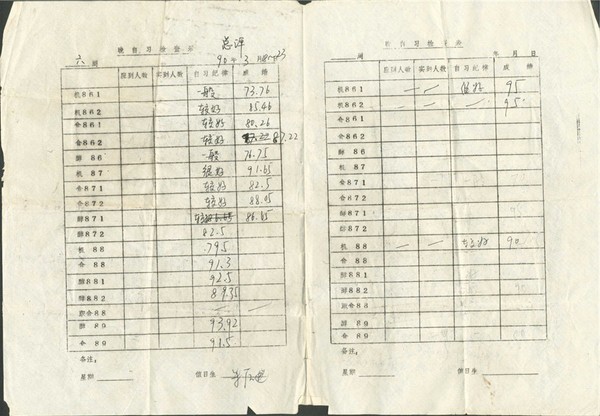 晚自习检查表 总评
六 周 90年3月 23
应到人数 实到人数 自习纪律 成绩
机861 一般 73.76
机862 较好 85.46
会861 较好 80.26
会862 较好 87.22
财86 一般 76.75
机87 很好 91.65
会871 较好 82.5
会872 较好 88.05
财871 86.65
财872 82.5
机88 79.5
会88 91.3
财881 92.5
财882 89.35
会88 — —
财89 93.92
会89 91.5
备注:
星期 值日生
晚自习检查表
周 年 月 日
应到人数 实到人数 自习纪律 成绩
机861 — — 较好 95
机862 — — 95
会861
会862
财86
机87
会871
会872
财871
财872
机88 — — 较好 90
会88
财881
财882
会88
财89
会89
备注:
星期 值日生